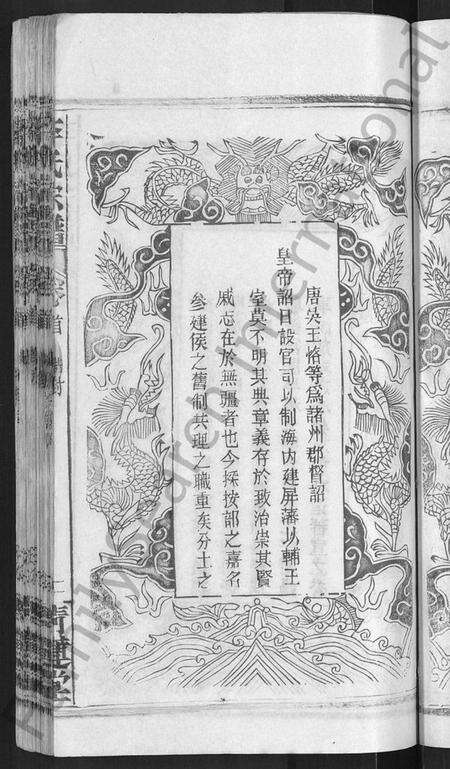 唐吳王恪等為諸州郡督詔
皇帝詔曰設官司以制海內建屏藩以輔王
室莫不明其典章義存於致治崇其賢
戚志在於無疆者也今採按部之嘉名
參建侯之舊制共理之職重矣分土之
氏宗譜
首
FamilySearch International